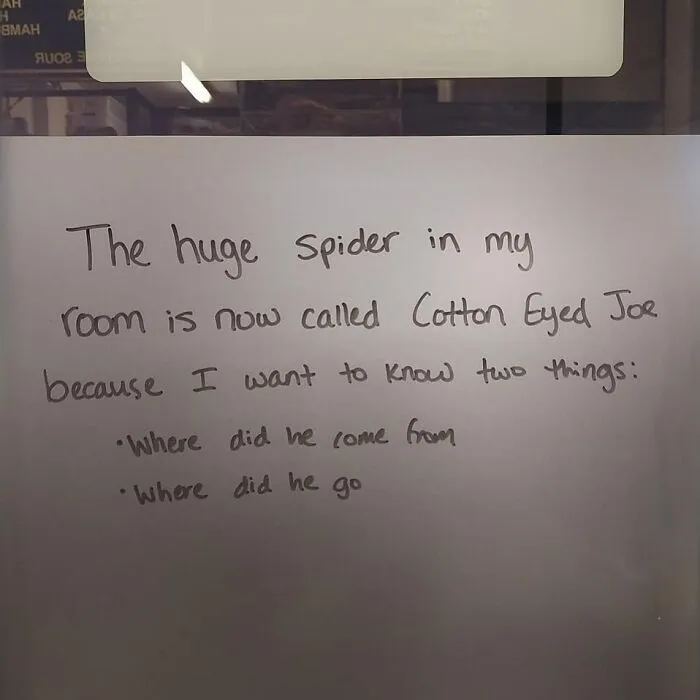 HAMB
SOUR
The huge spider in my
room is now called Cotton Eyed Joe
because I want to know two things:
•Where did he come from
•Where did he go